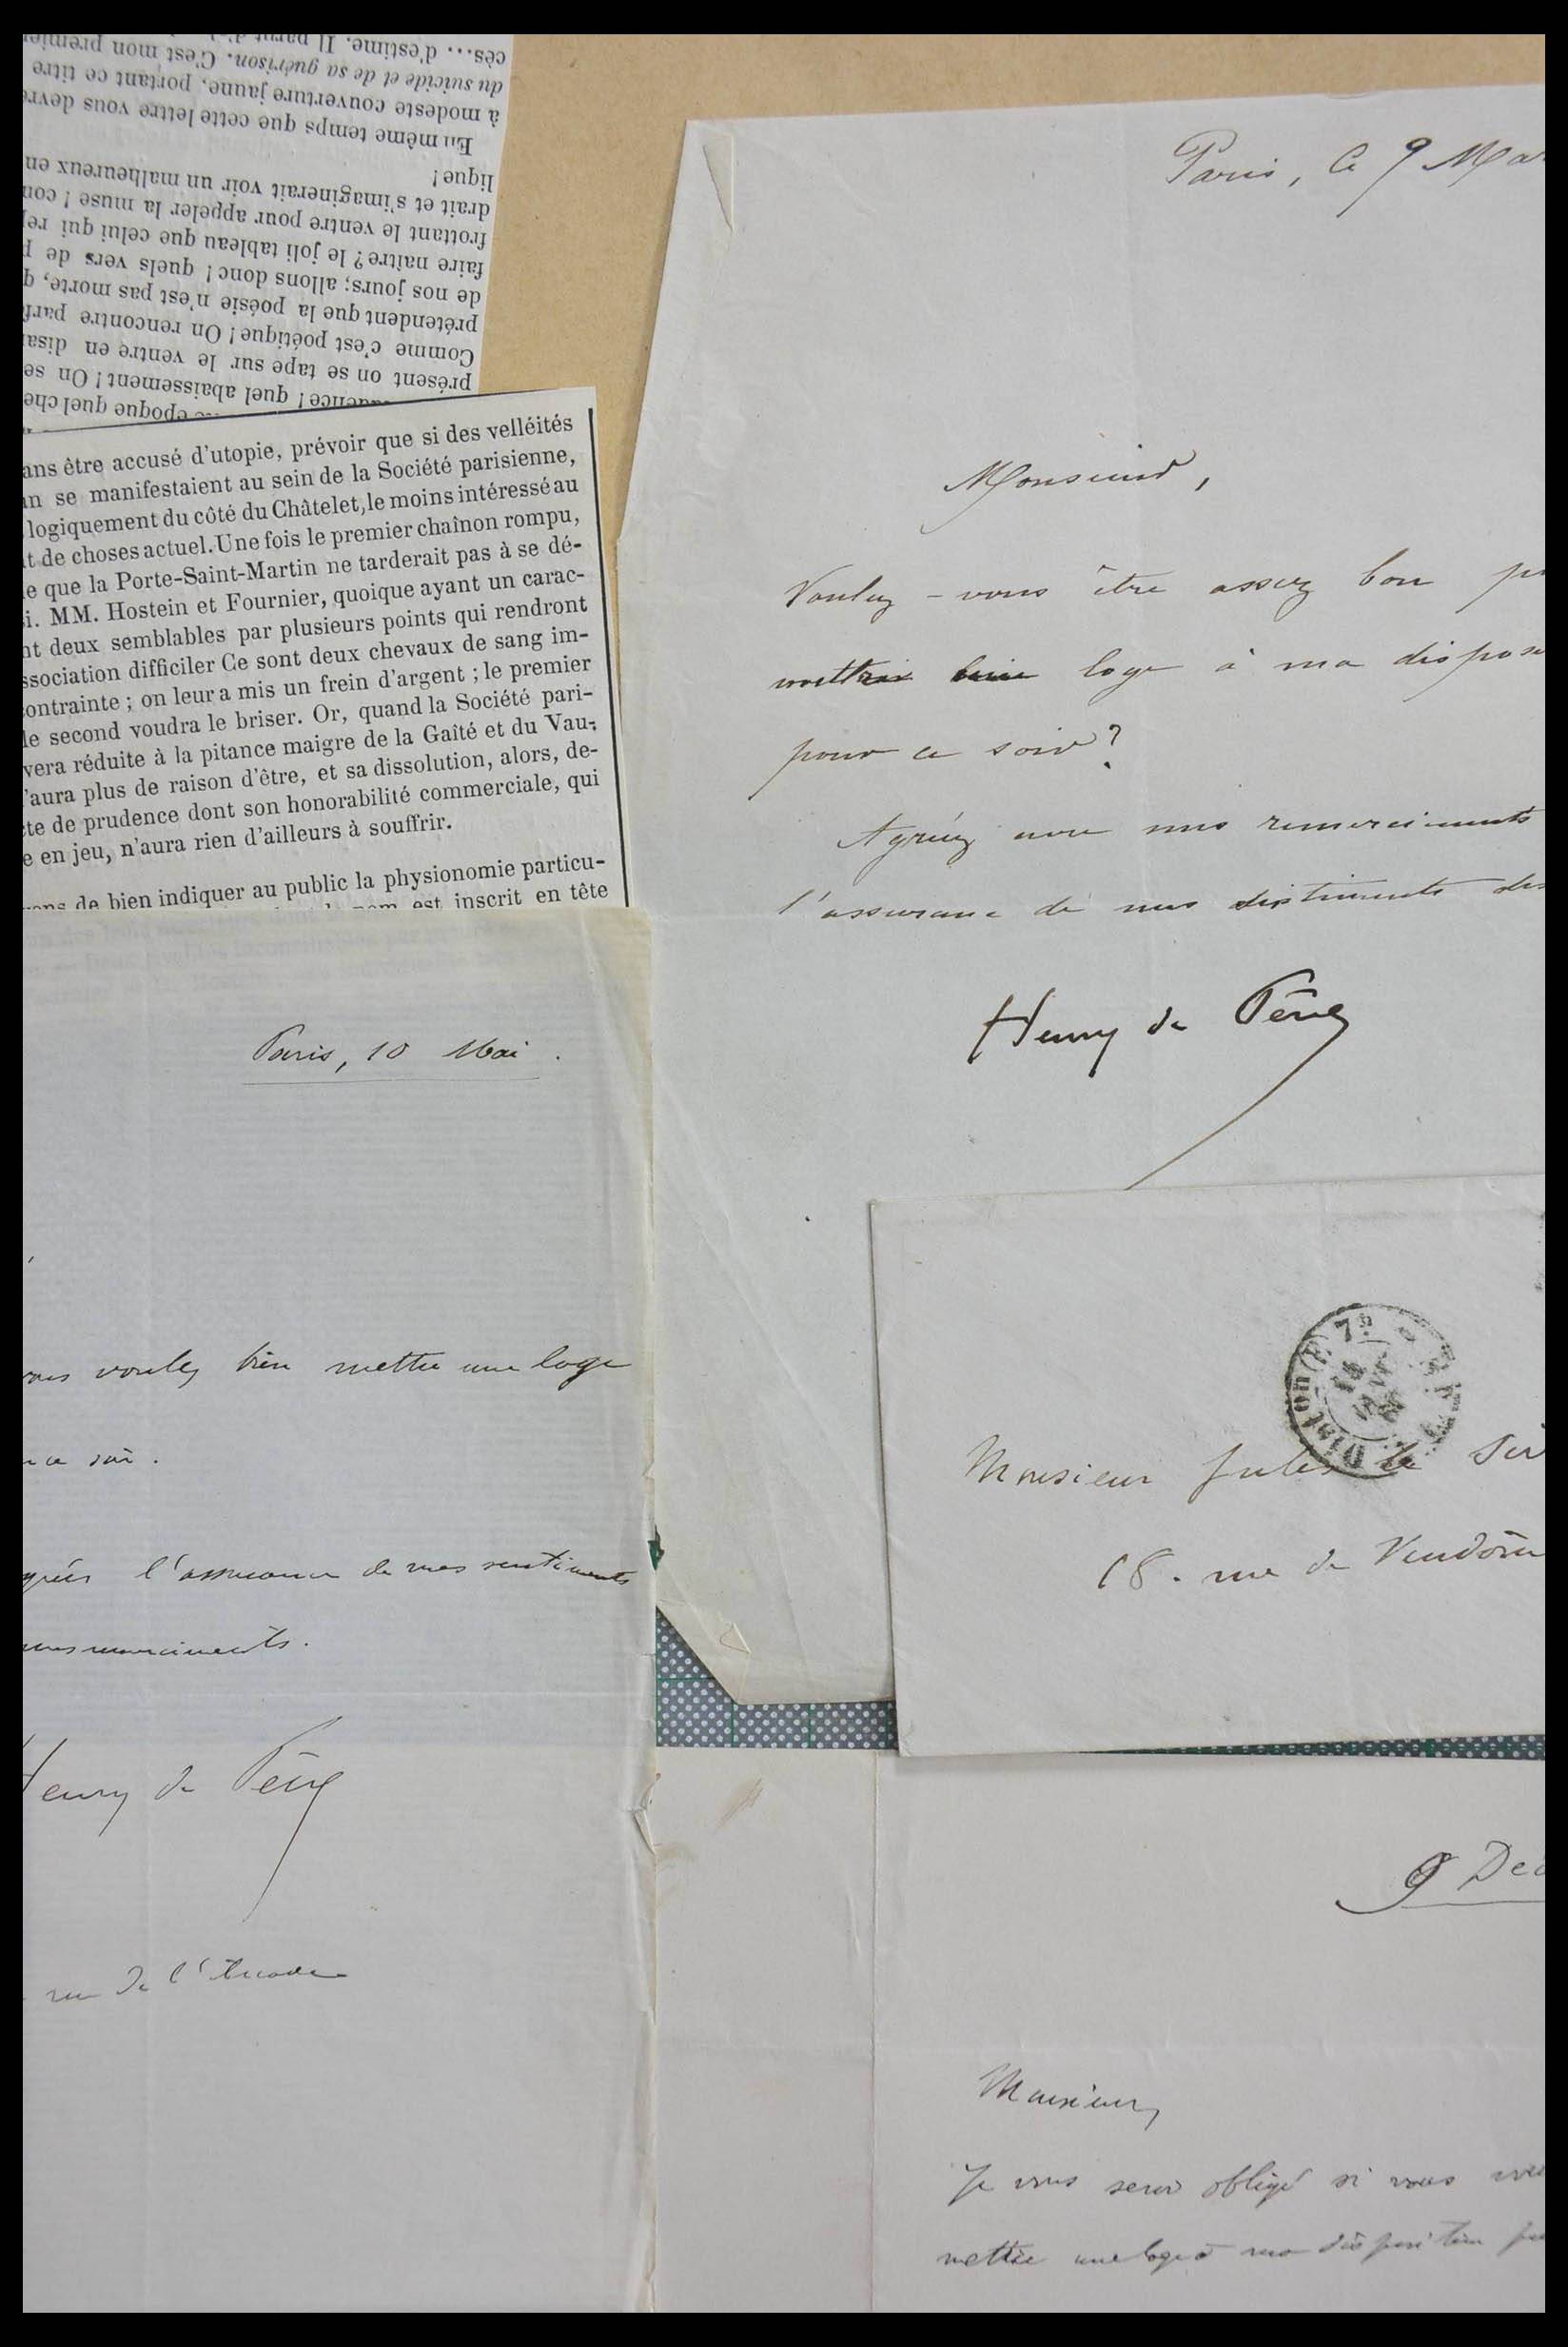 cès... d'estime. Il parut
du suicide et de sa guérison. C'est mon premier
à modeste couverture jaune, portant ce titre
En même temps que cette lettre vous devre
lique!
drait et s'imaginerait voir un malheureux en
frottant le ventre pour appeler la muse! con
faire naître? le joli tableau que celui qui re
de nos jours; allons donc! quels vers de p
prétendent que la poésie n'est pas morte, q
Comme c'est poétique! On rencontre parf
présent on se tape sur le ventre en disa
quel abaissement! On se
époque quel che
ans être accusé d'utopie, prévoir que si des velléités
n se manifestaient au sein de la Société parisienne,
logiquement du côté du Châtelet, le moins intéressé au
t de choses actuel. Une fois le premier chaînon rompu,
e que la Porte-Saint-Martin ne tarderait pas à se dé-
i. MM. Hostein et Fournier, quoique ayant un carac-
nt deux semblables par plusieurs points qui rendront
ssociation difficiler Ce sont deux chevaux de sang im-
contrainte; on leur a mis un frein d'argent; le premier
le second voudra le briser. Or, quand la Société pari-
vera réduite à la pitance maigre de la Gaîté et du Vau-
'aura plus de raison d'être, et sa dissolution, alors, de-
te de prudence dont son honorabilité commerciale, qui
e en jeu, n'aura rien d'ailleurs à souffrir.
ons de bien indiquer au public la physionomie particu-
nom est inscrit en tête
Paris, le 9 Mar
Monsieur,
Voulez-vous être assez bon p
mettre une loge à ma disposi
pour ce soir?
Agréez avec mes remerciements
l'assurance de mes sentiments
Henry de Pène
Paris, 10 Mai.
vous voulez bien mettre une loge
ce soir.
l'assurance de mes sentiments
mes remerciments.
Henry de Pène
rue de l'Arcade
DISTON
7E
Monsieur Jules le Sir
18. rue de Vendôm
9 Déc
Monsieur,
Je vous serai obligé si vous
mettre une loge à ma disposition